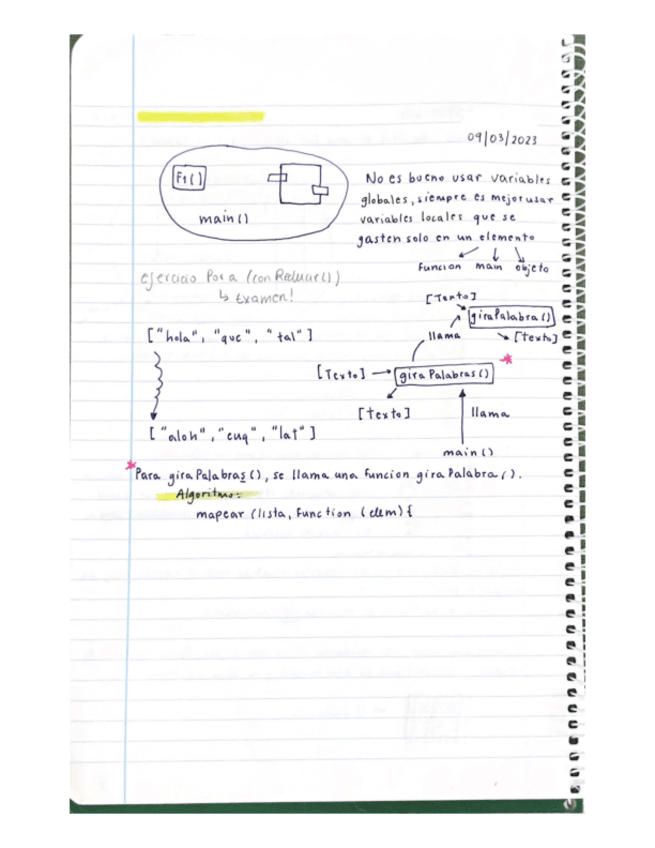 09/03/2023
F1()
main()
No es bueno usar variables
globales, siempre es mejor usar
variables locales que se
gasten solo en un elemento
funcion main objeto
ejercicio Para (con Reducir())
↳ Examen!
["hola", "que", "tal"]
["aloh", "euq", "lat"]
[Texto]
giraPalabra()
[texto]
llama
[Texto] → giraPalabras() *
[texto]
llama
main()
* Para giraPalabras(), se llama una funcion giraPalabra().
Algoritmo:
mapear (lista, function (elem) {